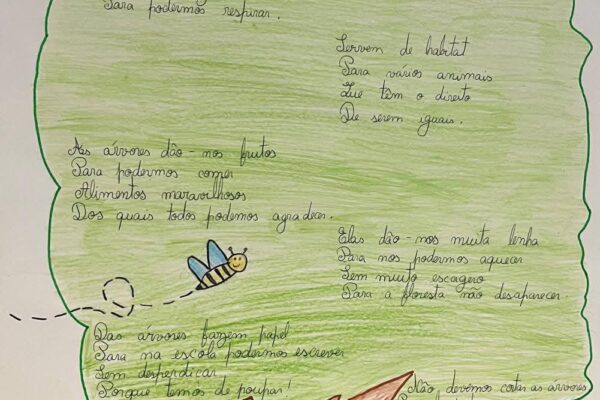 Para podermos respirar.
Servem de habitat
Para vários animais
Que têm o direito
De serem iguais.
As árvores dão-nos frutos
Para podermos comer
Alimentos maravilhosos
Dos quais todos podemos agradecer.
Elas dão-nos muita lenha
Para nos podermos aquecer
Sem muito escagero
Para a floresta não desaparecer
Das árvores fazem papel
Para na escola podermos escrever
Sem desperdiçar
Porque temos de poupar!
Não devemos cortar as árvores